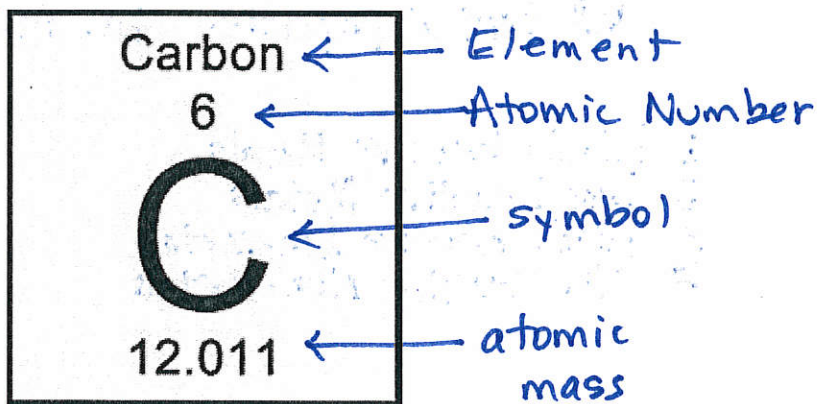 Carbon Element
6 Atomic Number
C symbol
12.011 atomic
mass